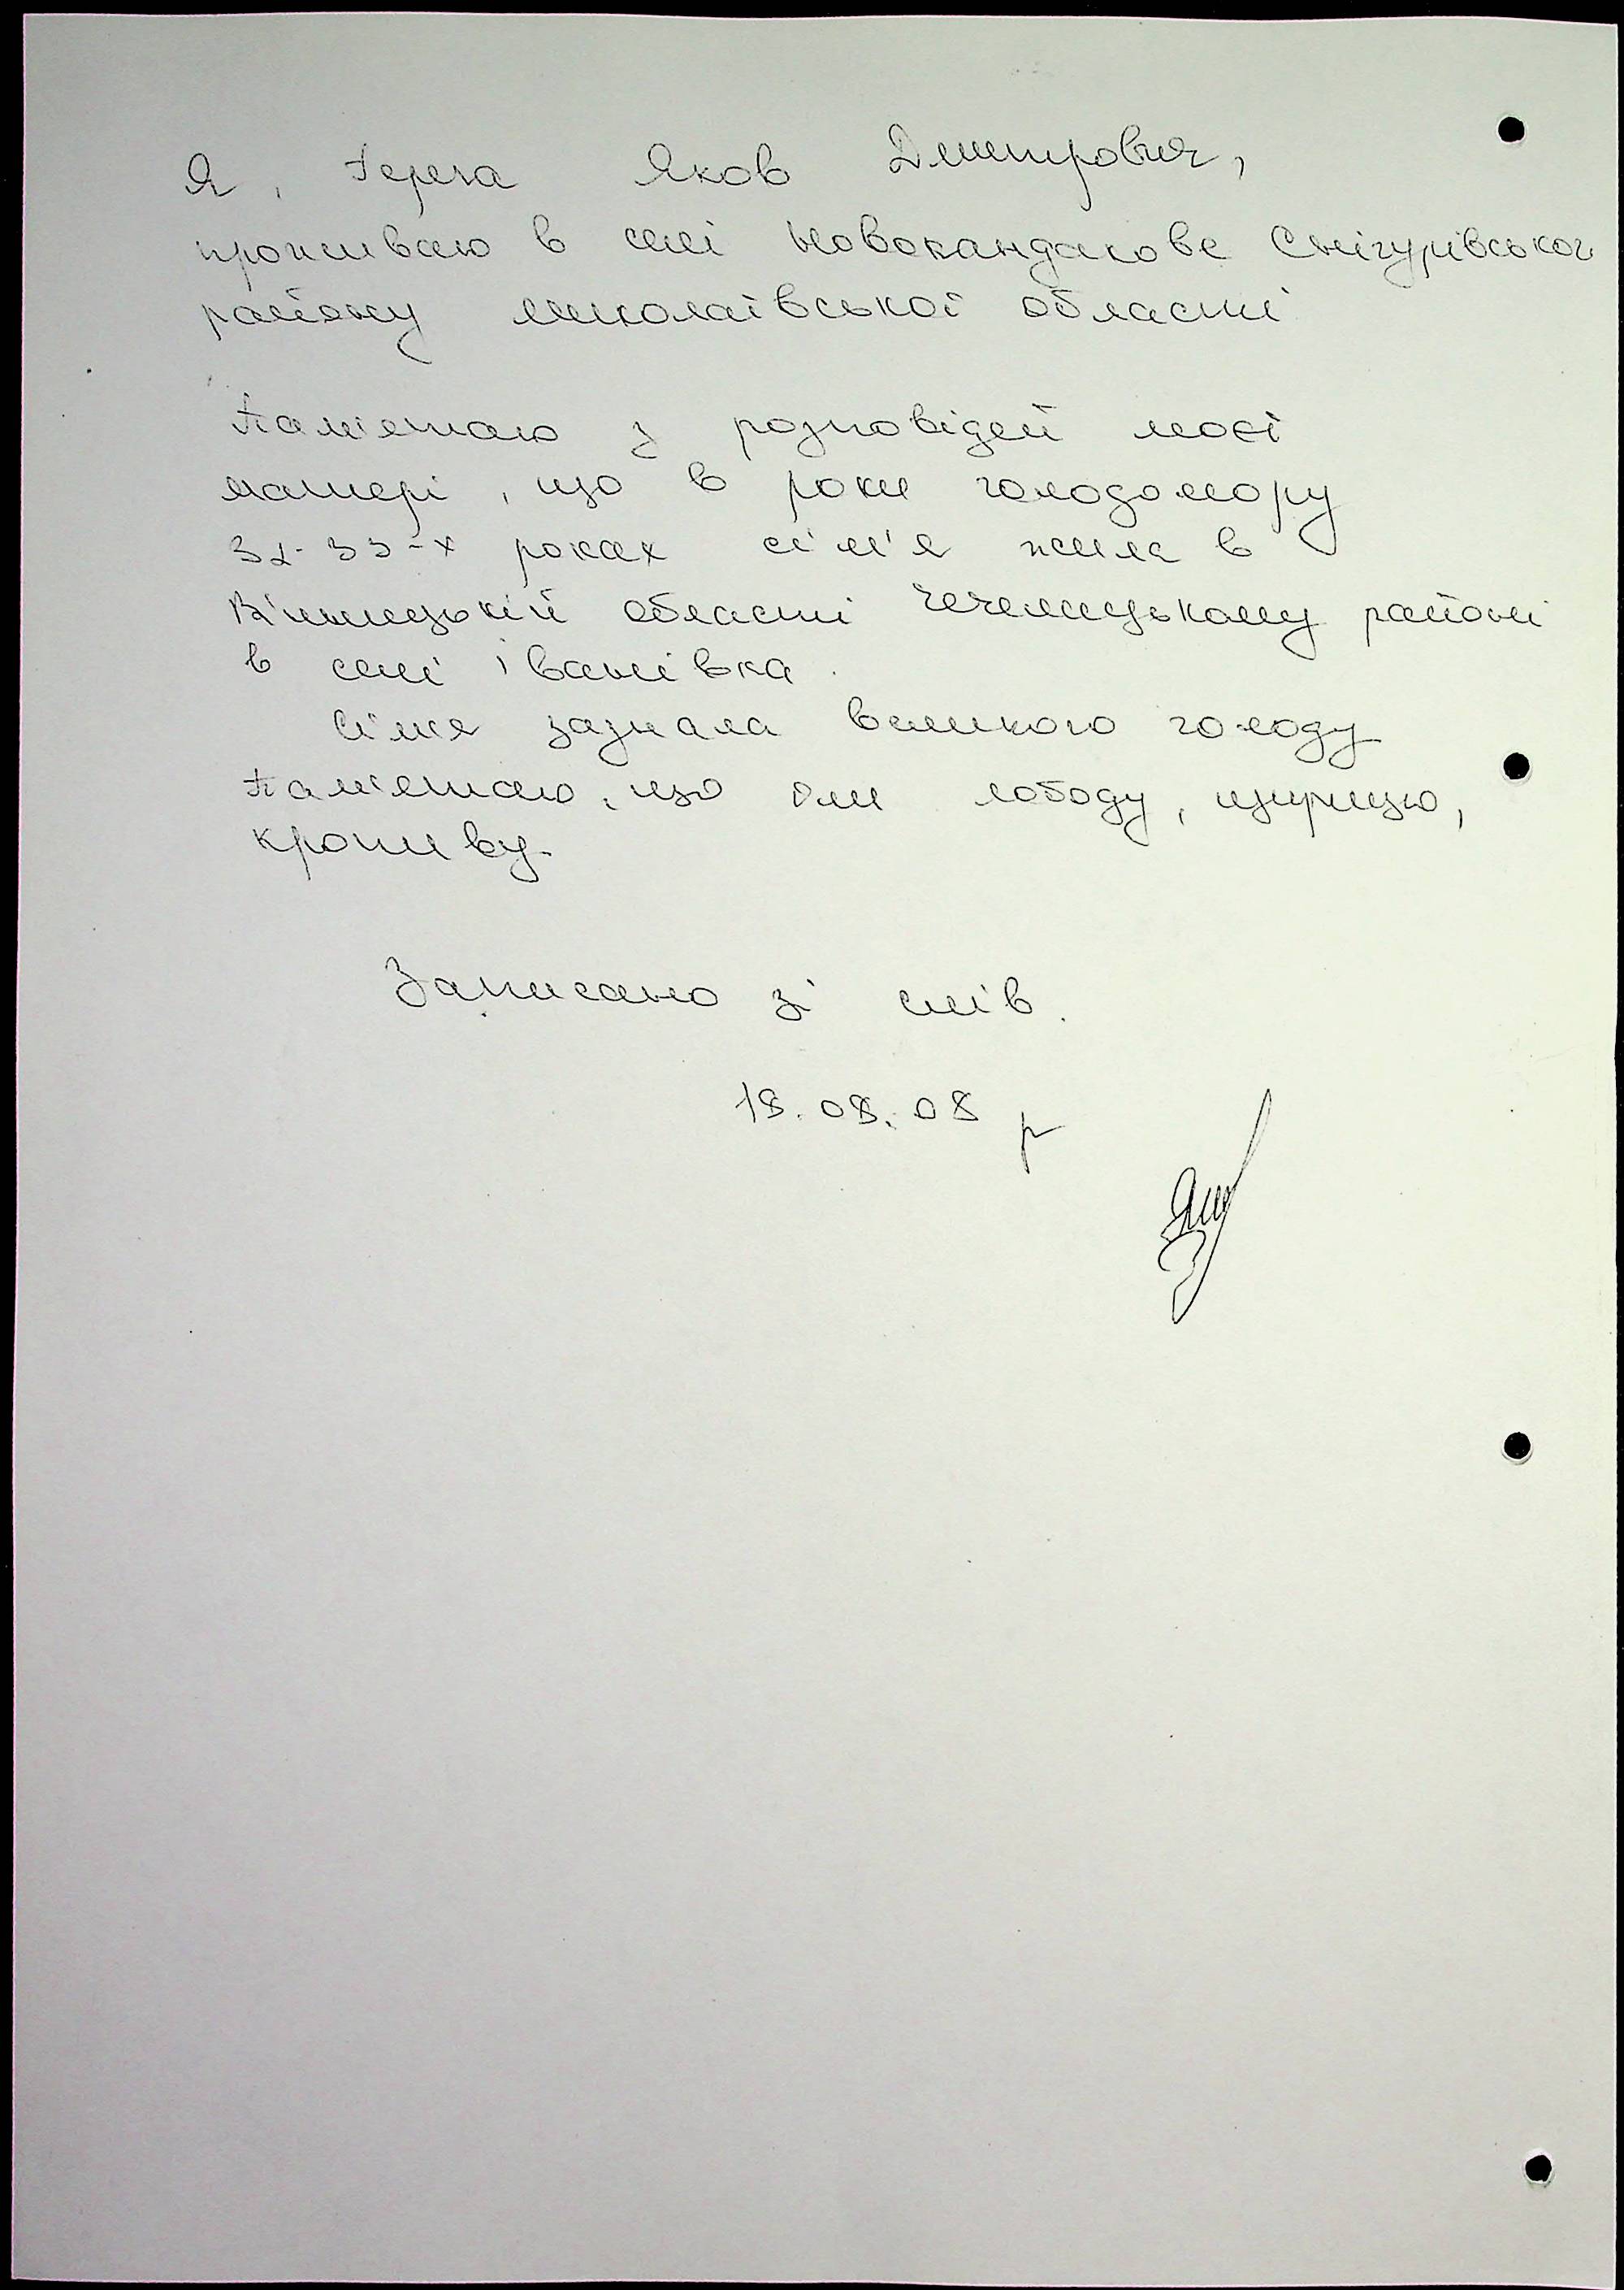 Я, Герега Яков Дмитрович,
проживаю в селі Новокандакове Снігурівської
району Миколаївської області
Пам'ятаю з розповідей моєї
матері, що в роки голодомору
32-33-х роках сім'я жила в
Вінницькій області Чечельницькому районі
в селі Іванівка.
Сімя зазнала великого голоду
Пам'ятаю, що їли лободу, щирицю,
кропиву.
Записано зі слів.
18.08.08 р